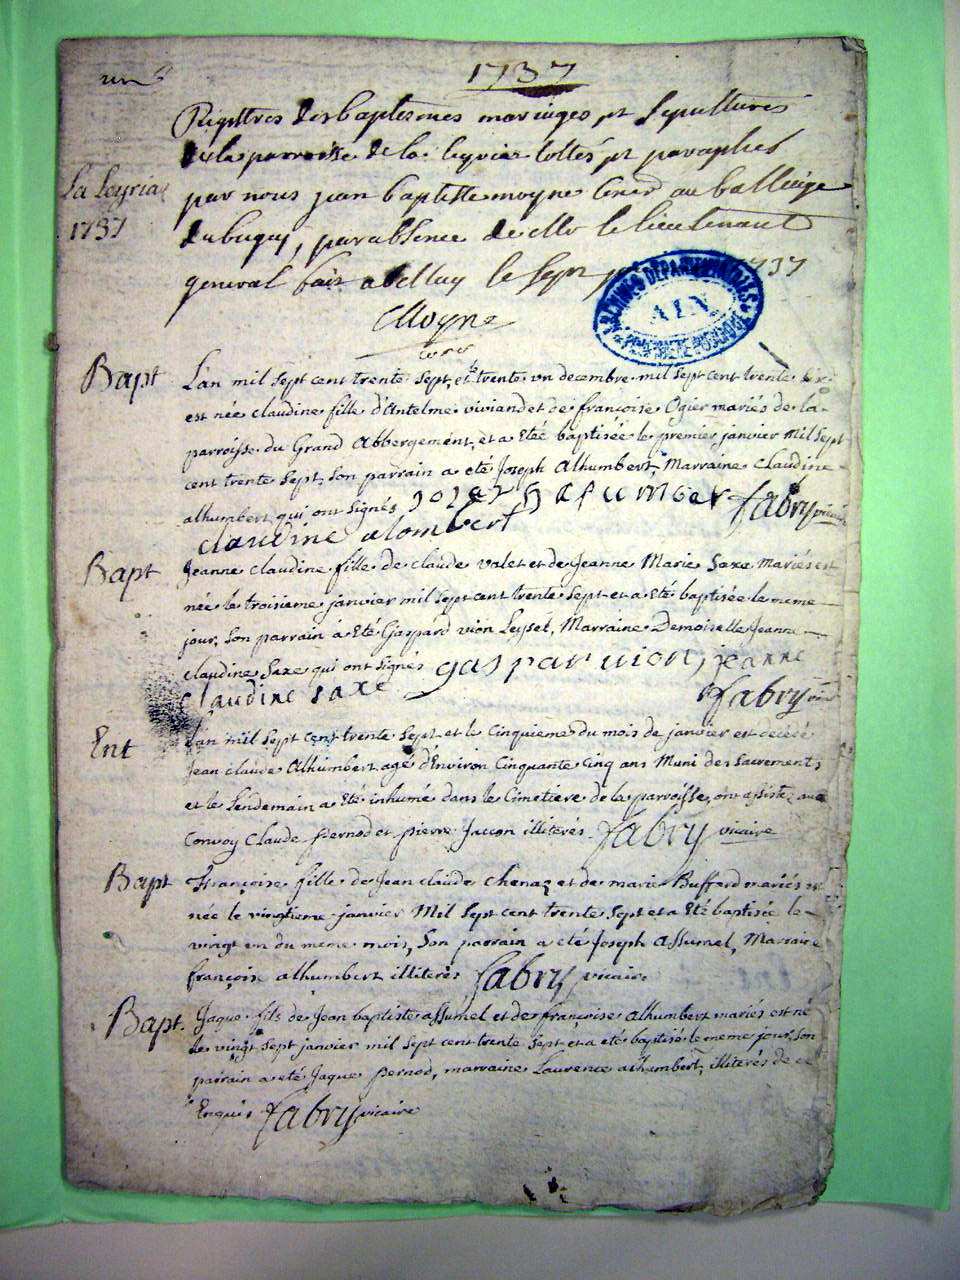 1737
Registres des baptesmes mariages et sepultures
de la parroisse de la leyriaz cottés et paraphés
La Leyriaz
par nous jean baptiste moyne au balliage
1737
du bugey, par absence de mr le lieutenant
general fait a belley le sept 1737
Moyne
ARCHIVES DÉPARTEMENTALES
AIN
Bapt
L'an mil sept cent trente sept, et le trente un decembre mil sept cent trente six
est née claudine fille d'Antelme viviand et de françoise Ogier mariés de la
parroisse du Grand Abbergement, et a Eté baptisée le premier janvier Mil sept
cent trente sept, son parrain a eté Joseph Alhumbert, Marraine Claudine
alhumbert qui ont signés Fabry vicaire
claudine alombert
Bapt
Jeanne claudine fille de claude valet et de Jeanne Marie Saxe Mariés est
née le troisieme janvier mil sept cent trente sept et a Eté baptisée le meme
jour, son parrain à Eté Gaspard vion Leyset, Marraine Demoiselle Jeanne
claudine Saxe qui ont signés gaspar uion, jeanne
claudine saxe Fabry vic
Ent
L'an mil sept cent trente sept et le cinquieme du mois de janvier est decedé
Jean claude Alhumbert agé d'Environ Cinquante cinq ans Muni des sacrements
et le Lendemain a Eté inhumé dans le Cimetiere de la parroisse, ont assistez au
Convoy Claude pernod et pierre Jaccon illiterés Fabry vicaire
Bapt
Françoise fille de Jean claude Chenaz et de marie Buffard mariés est
née le vingtieme janvier Mil sept cent trente sept et a Eté baptisée le
vingt un du meme mois, son parrain a eté Joseph Assumel, Marraine
françoise alhumbert illiterés Fabry vicaire
Bapt.
Jaque fils de Jean baptiste assumel et de françoise Alhumbert mariés est né
le vingt sept janvier mil sept cent trente sept et a eté baptisé le meme jour, son
parrain a eté Jaque pernod, marraine Laurence alhumbert, illiterés de ce
Enquis Fabry vicaire